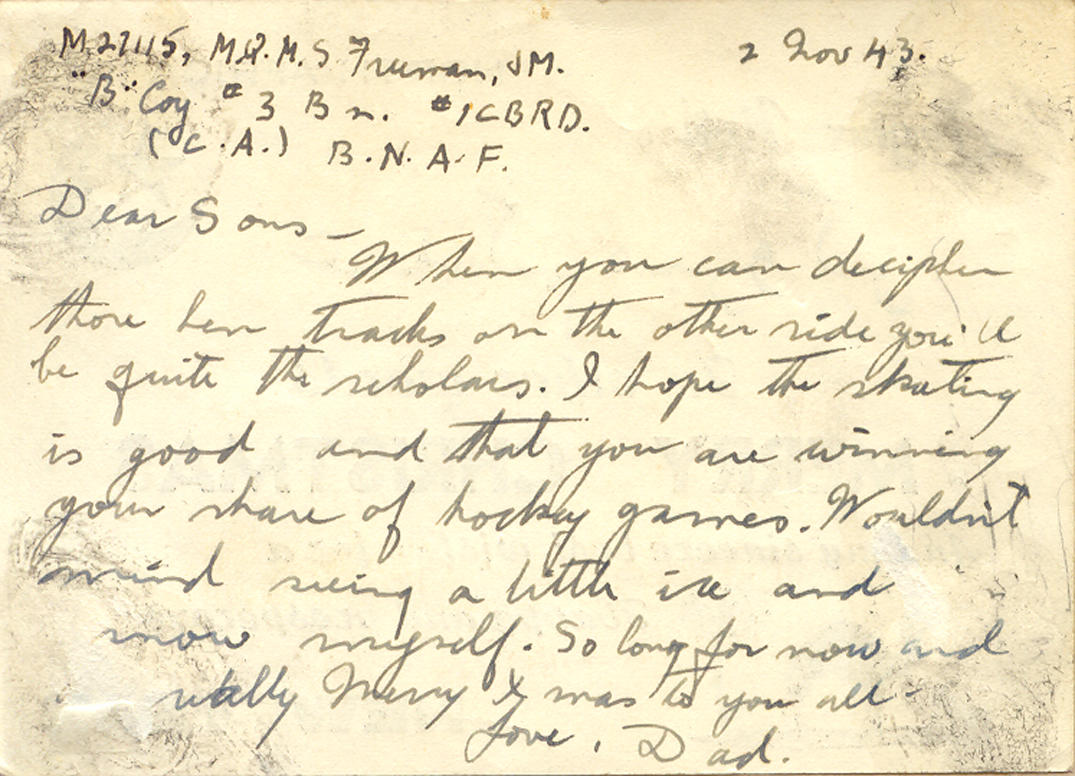 M27115, M.Q.M.S Freeman, J.M.
2 Nov 43.
"B" Coy # 3 Bn. #1CBRD.
(C.A.) B.N.A.F.
Dear Sons –
When you can decipher
those hen tracks on the other side you'll
be quite the scholars. I hope the skating
is good and that you are winning
your share of hockey games. Wouldn't
mind seeing a little ice and
snow myself. So long for now and
Merry Xmas to you all
Love, Dad.